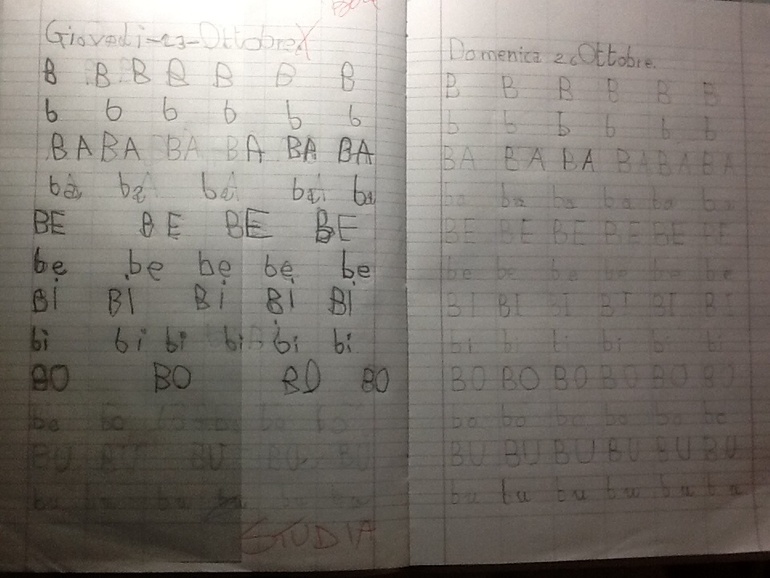 Giovedi-23-Ottobre
B B B B B B B
b b b b b b
BA BA BA BA BA BA
ba ba ba ba ba
BE BE BE BE
be be be be be
BI BI BI BI BI
bi bi bi bi bi bi
BO BO BO BO
bo bo bo bo bo bo
BU BU BU BU BU
bu bu bu bu bu bu
STUDIA
Domenica 26 Ottobre.
B B B B B B
b b b b b b
BA BA BA BA BA BA
ba ba ba ba ba ba
BE BE BE BE BE BE
be be be be be be
BI BI BI BI BI BI
bi bi bi bi bi bi
BO BO BO BO BO BO
bo bo bo bo bo bo
BU BU BU BU BU BU
bu bu bu bu bu bu